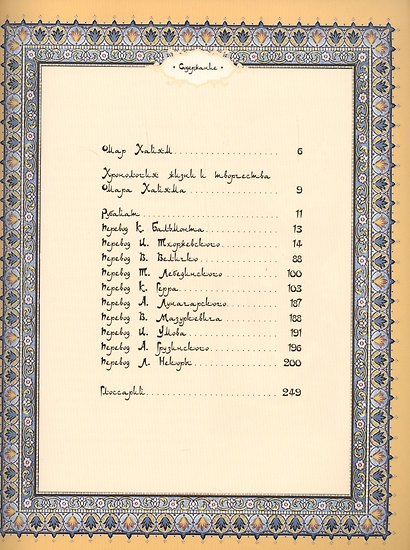 • Содержание •
Омар Хайям 6
Хронология жизни и творчества
Омара Хайяма 9
Рубайат 11
Перевод К. Бальмонта 13
Перевод И. Тхоржевского 14
Перевод В. Величко 88
Перевод Т. Лебединского 100
Перевод К. Герра 103
Перевод А. Луначарского 187
Перевод В. Мазуркевича 188
Перевод И. Умова 191
Перевод А. Грузинского 196
Перевод Л. Некоры 200
Глоссарий 249